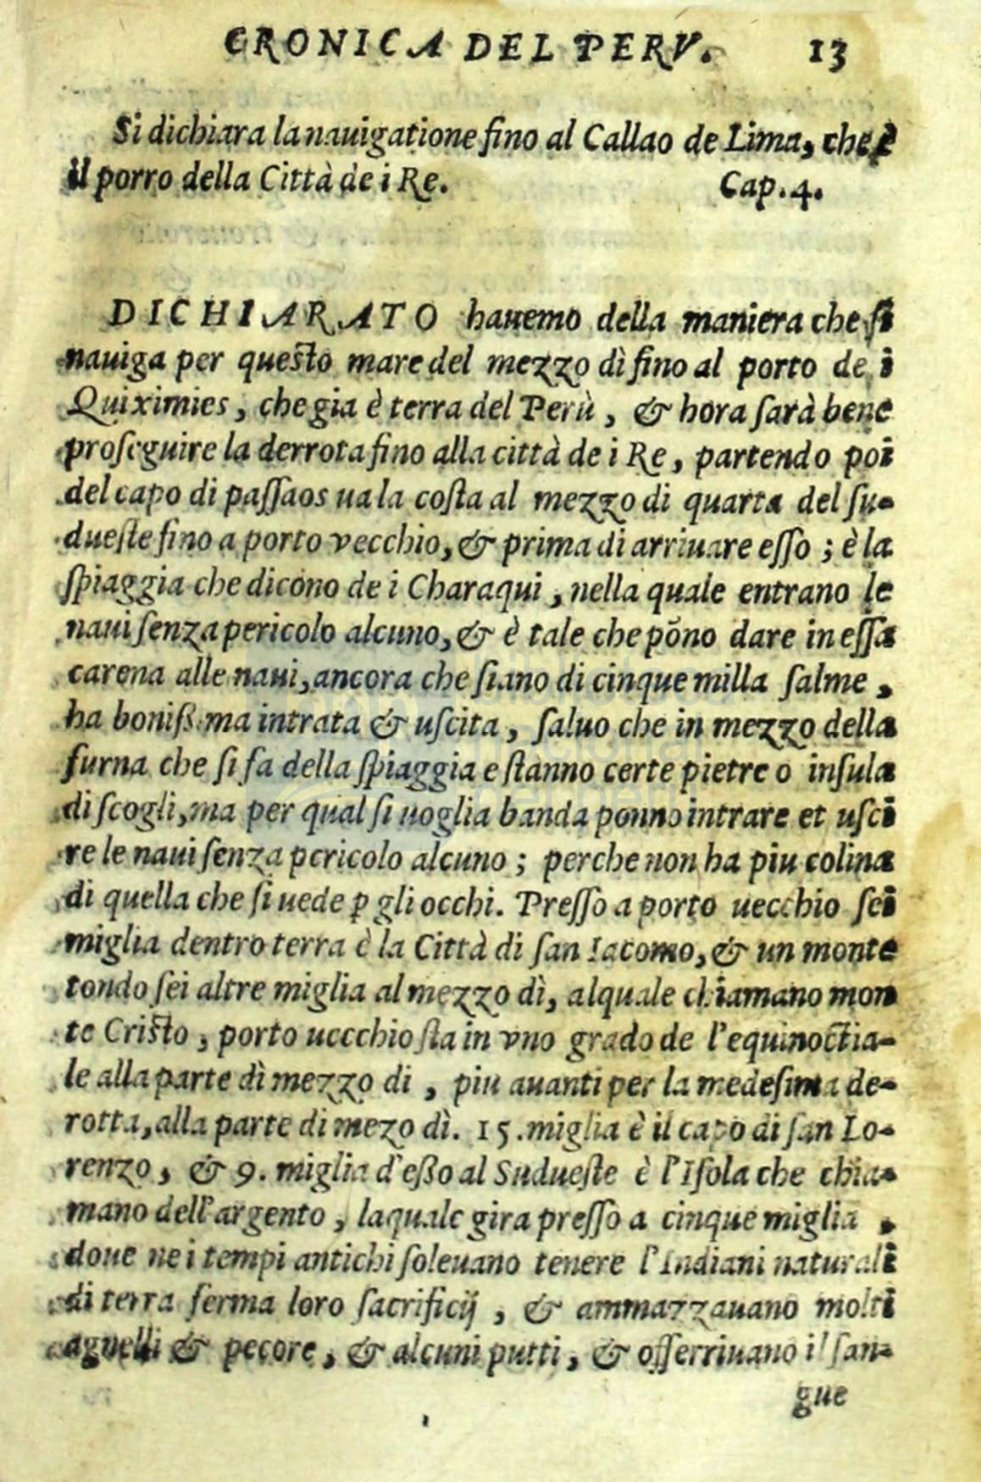 CRONICA DEL PERV. 13
Si dichiara la nauigatione fino al Callao de Lima, che è
il porro della Città de i Re. Cap. 4.
DICHIARATO hauemo della maniera che si
nauiga per questo mare del mezzo dì fino al porto de i
Quiximies, che gia è terra del Perù, & hora sarà bene
proseguire la derrota fino alla città de i Re, partendo poi
del capo di passaos ua la costa al mezzo di quarta del su-
dueste fino a porto vecchio, & prima di arriuare esso; è la
spiaggia che dicono de i Charaqui, nella quale entrano le
naui senza pericolo alcuno, & è tale che põno dare in essa
carena alle naui, ancora che siano di cinque milla salme,
ha bonissima intrata & uscita, saluo che in mezzo della
furna che si fa della spiaggia e stanno certe pietre o insula
di scogli, ma per qual si uoglia banda ponno intrare et usci
re le naui senza pericolo alcuno; perche non ha piu colina
di quella che si uede ꝑ gli occhi. Presso a porto uecchio sei
miglia dentro terra è la Città di san Iacomo, & un monte
tondo sei altre miglia al mezzo dì, alquale chiamano mon
te Cristo, porto uecchio sta in vno grado de l'equinoctia-
le alla parte dì mezzo di, piu auanti per la medesima de-
rotta, alla parte di mezo dì. 15. miglia è il capo di san Lo-
renzo, & 9. miglia d'esso al Sudueste è l'Isola che chia-
mano dell'argento, laquale gira presso a cinque miglia,
doue ne i tempi antichi soleuano tenere l'Indiani naturali
di terra ferma loro sacrificij, & ammazzauano molti
agnelli & pecore, & alcuni putti, & offerriuano il san-
gue